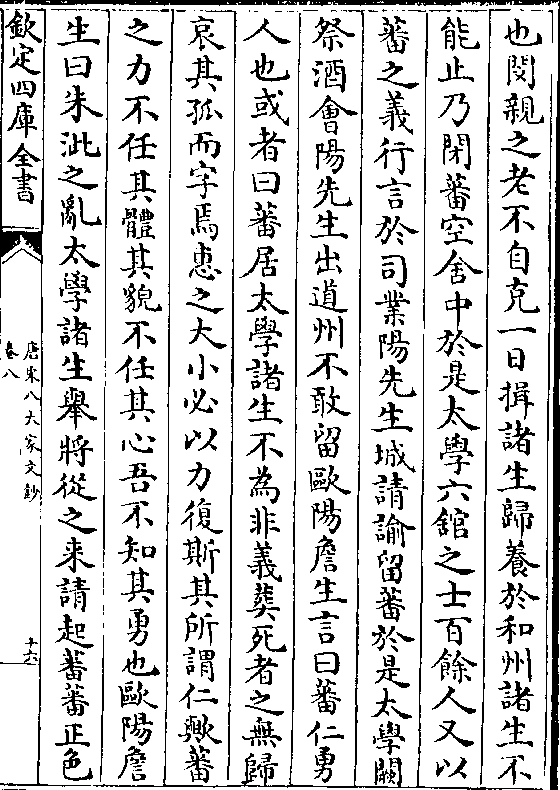 也閔親之老不自克一日揖諸生歸養於和州諸生不
能止乃閉蕃空舍中於是太學六館之士百餘人又以
蕃之義行言於司業陽先生城請諭留蕃於是太學闕
祭酒會陽先生出道州不敢留歐陽詹生言曰蕃仁勇
人也或者曰蕃居太學諸生不為非義葬死者之無歸
哀其孤而字焉惠之大小必以力復斯其所謂仁歟蕃
之力不任其體其貌不任其心吾不知其勇也歐陽詹
生曰朱泚之亂太學諸生舉將從之来請起蕃蕃正色
欽定四庫全書
唐宋八大家文鈔
卷八
十六